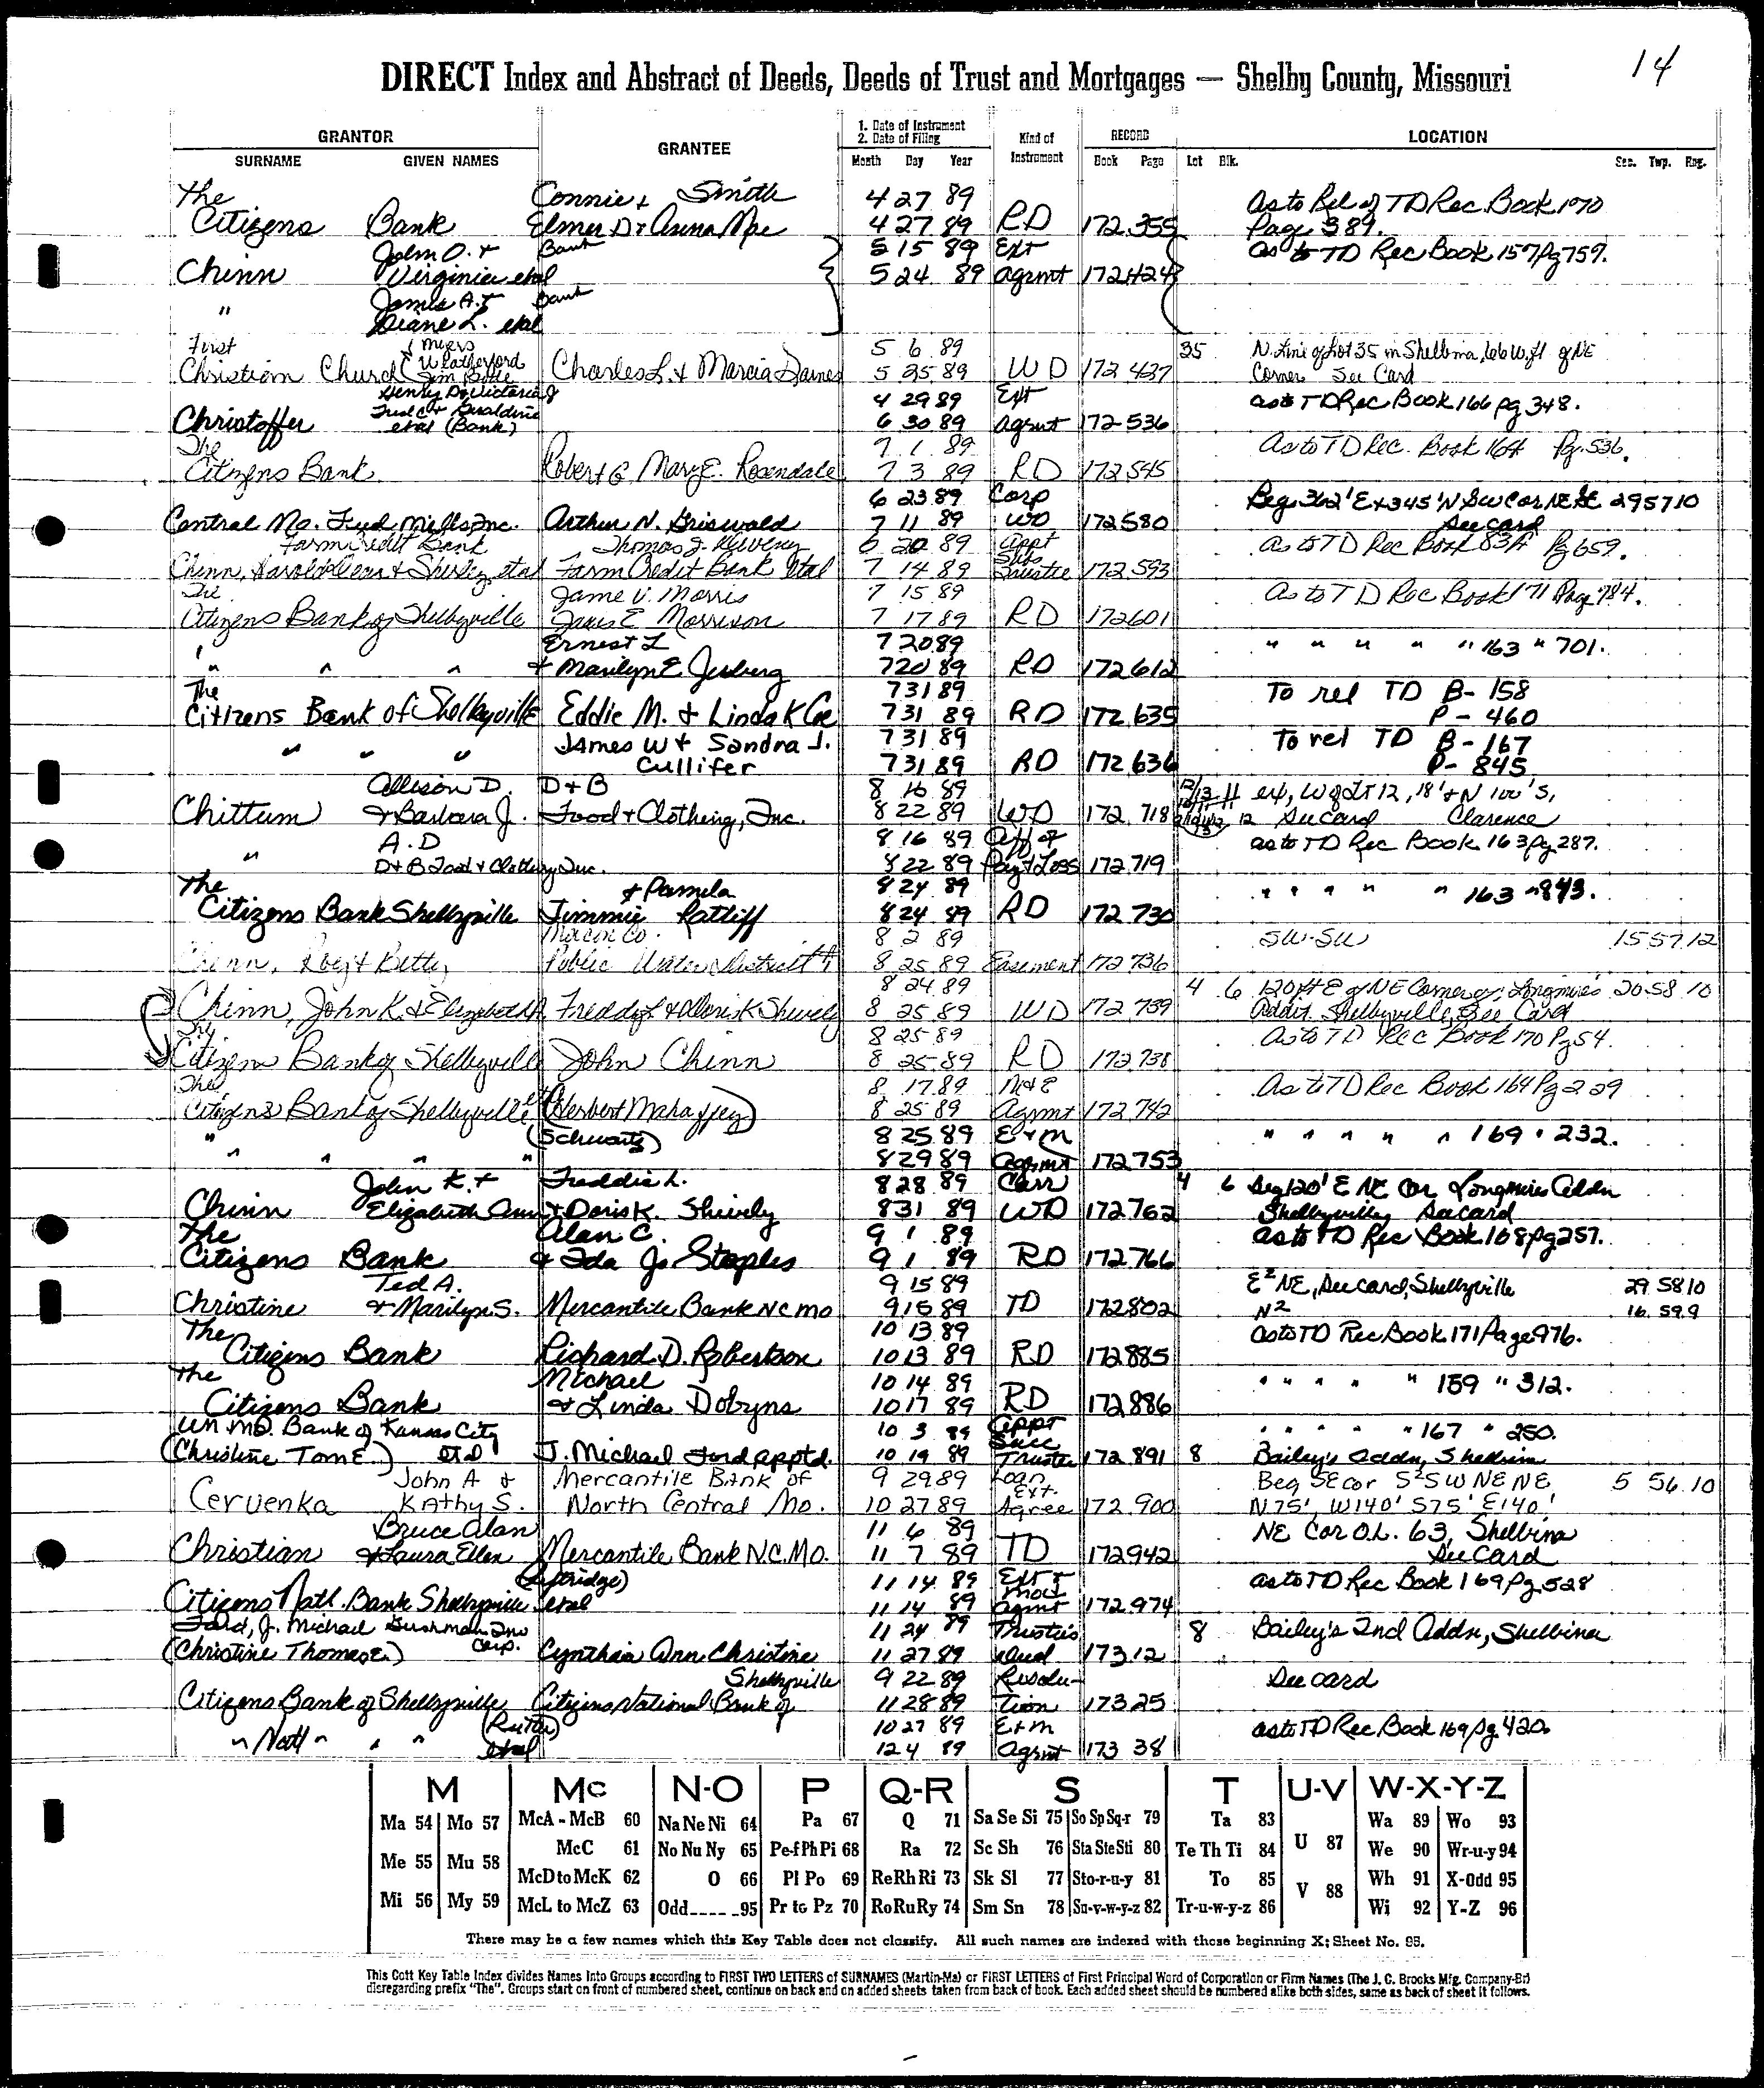 14
DIRECT Index and Abstract of Deeds, Deeds of Trust and Mortgages — Shelby County, Missouri
GRANTOR GRANTEE 1. Date of Instrument 2. Date of Filing Kind of Instrument RECORD LOCATION
SURNAME GIVEN NAMES Month Day Year Book Page Lot Blk. Sec. Twp. Rng.
The Connie & Smith 4 27 89 As to Rel of TD Rec. Book 170
Citizens Bank Elmer D & Anna Mae 4 27 89 RD 172 355 Page 389.
John O. & Bank 5 15 89 Ext as to TD Rec Book 157 Pg 759.
Chinn Virginia etal 5 24 89 Agrmt 172 424
" James A. & Bank
Diane L. etal
First 5 6 89 35 N. Line of Lot 35 in Shelbina, 66 W, ft of NE
Christian Church Charles L. & Marcia Barnes 5 25 89 WD 172 437 Corner See Card
Henry D & Victoria J 4 29 89 Ext as to TD Rec Book 166 pg 348.
Christoffer Fred C & Geraldine etal (Bank) 6 30 89 Agrmt 172 536
The 7 1 89 As to TD Rec. Book 164 Pg. 536.
Citizens Bank Robert G. Mary E. Rosendale 7 3 89 RD 172 545
6 23 89 Corp Beg. 362' E & 345' N SW Cor NE SE 29 57 10
Central Mo. Feed Mills Inc. Arthur N. Griswold 7 11 89 WD 172 580 See card
Farm Credit Bank Thomas J. 6 20 89 Appt As to TD Rec Book 83A Pg 659.
Chinn, Harold Dean & Shirley, etal Farm Credit Bank etal 7 14 89 Sub Trustee 172 593
The Jame V. Morris 7 15 89 As to TD Rec Book 171 Pag 784.
Citizens Bank of Shelbyville Janis E Morrison 7 17 89 RD 172 601
Ernest L 7 20 89 " " " " " 163 " 701.
" " " & Marilyn E. 7 20 89 RD 172 612
The 7 31 89 To rel TD B- 158
Citizens Bank of Shelbyville Eddie M. & Linda K Coe 7 31 89 RD 172 635 P- 460
" " " James W & Sandra J. 7 31 89 To rel TD B- 167
Cullifer 7 31 89 RD 172 636 P- 845
Allison D. D & B 8 16 89 ex, W of Lt 12, 18' & N 100' S,
Chittum & Barbara J. Food & Clothing, Inc. 8 22 89 WD 172 718 12 See Card Clarence
" A. D 8 16 89 Aff of as to TD Rec Book 163 pg 287.
D & B Food & Clothing Inc. 8 22 89 Pay & Loss 172 719
The & Pamela 8 24 89 " " " " " 163 " 843.
Citizens Bank Shelbyville Jimmie Ratliff 8 24 89 RD 172 730
Macon Co. 8 2 89 SW-SW 15 57 12
Chinn, Roy & Betty Public Water District #1 8 25 89 Easement 172 736
8 24 89 4 6 120 ft E of NE Corner of Longmires 20 58 10
Chinn, John K. & Elizabeth A Freddy L & Doris K Shively 8 25 89 WD 172 739 Addit. Shelbyville, See Card
The 8 25 89 As to TD Rec Book 170 Pg 54.
Citizens Bank of Shelbyville John Chinn 8 25 89 RD 172 738
The 8 17 89 M & E As to TD Rec Book 164 Pg 229
Citizens Bank of Shelbyville (Herbert Mahaffey) 8 25 89 Agrmt 172 742
(Schwartz) 8 25 89 E & M " " " " " 169 " 232.
" " " " 8 29 89 Agrmt 172 753
John K. & Freddie L. 8 28 89 Corr 4 6 Beg 120' E NE Cor Longmires Addn
Chinn Elizabeth Ann & Doris K. Shively 8 31 89 WD 172 762 Shelbyville See card
The Alan C. 9 1 89 as to TD Rec Book 168 pg 257.
Citizens Bank & Ida Jo Staples 9 1 89 RD 172 766
Ted A. 9 15 89 E² NE, See card, Shelbyville 29 58 10
Christine & Marilyn S. Mercantile Bank NC MO 9 15 89 TD 172 802 N² 16 59 9
The 10 13 89 as to TD Rec Book 171 Page 976.
Citizens Bank Richard D. Robertson 10 13 89 RD 172 885
The Michael 10 14 89 " " " " " 159 " 312.
Citizens Bank & Linda Dobyns 10 17 89 RD 172 886
Un Mo. Bank of Kansas City 10 3 89 Appt Succ " " " " " 167 " 250.
(Christine Tom E.) etal J. Michael Ford apptd. 10 19 89 Trustee 172 891 8 Bailey's Addn, Shelbina
John A & Mercantile Bank of 9 29 89 Loan Ext. Beg SE cor S² SW NE NE, 5 56 10
Cervenka Kathy S. North Central Mo. 10 27 89 Agree 172 900 N75', W140' S75' E140'
Bruce Alan 11 6 89 NE Cor O.L. 63, Shelbina
Christian & Laura Ellen Mercantile Bank N.C. MO. 11 7 89 TD 172 942 See Card
11 14 89 Ext & Mod as to TD Rec Book 169 Pg 528
Citizens Natl. Bank Shelbyville etal 11 14 89 Agmt 172 974
Ford, J. Michael Bushman Inc Corp. 11 24 89 Trustees 8 Bailey's 2nd Addn, Shelbina
(Christine Thomas E.) Cynthia Ann Christine 11 27 89 Deed 173 12
Shelbyville 9 22 89 Resolu- See card
Citizens Bank of Shelbyville Citizens National Bank of 11 28 89 tion 173 25
" Natl " " " etal 10 27 89 E & M as to TD Rec Book 169 pg 420.
12 4 89 Agrmt 173 38
M Mc N-O P Q-R S T U-V W-X-Y-Z
Ma 54 Mo 57 McA - McB 60 Na Ne Ni 64 Pa 67 Q 71 Sa Se Si 75 So Sp Sq-r 79 Ta 83 U 87 Wa 89 Wo 93
Me 55 Mu 58 McC 61 No Nu Ny 65 Pe-f Ph Pi 68 Ra 72 Sc Sh 76 Sta Ste Sti 80 Te Th Ti 84 We 90 Wr-u-y 94
McD to McK 62 O 66 Pl Po 69 Re Rh Ri 73 Sk Sl 77 Sto-r-u-y 81 To 85 V 88 Wh 91 X-Odd 95
Mi 56 My 59 McL to McZ 63 Odd 95 Pr to Pz 70 Ro Ru Ry 74 Sm Sn 78 Su-v-w-y-z 82 Tr-u-w-y-z 86 Wi 92 Y-Z 96
There may be a few names which this Key Table does not classify. All such names are indexed with those beginning X; Sheet No. 95.
This Cott Key Table Index divides Names Into Groups according to FIRST TWO LETTERS of SURNAMES (Martin-Ma) or FIRST LETTERS of First Principal Word of Corporation or Firm Names (The J. C. Brooks Mfg. Company-Br)
disregarding prefix "The". Groups start on front of numbered sheet, continue on back and on added sheets taken from back of book. Each added sheet should be numbered alike both sides, same as back of sheet it follows.